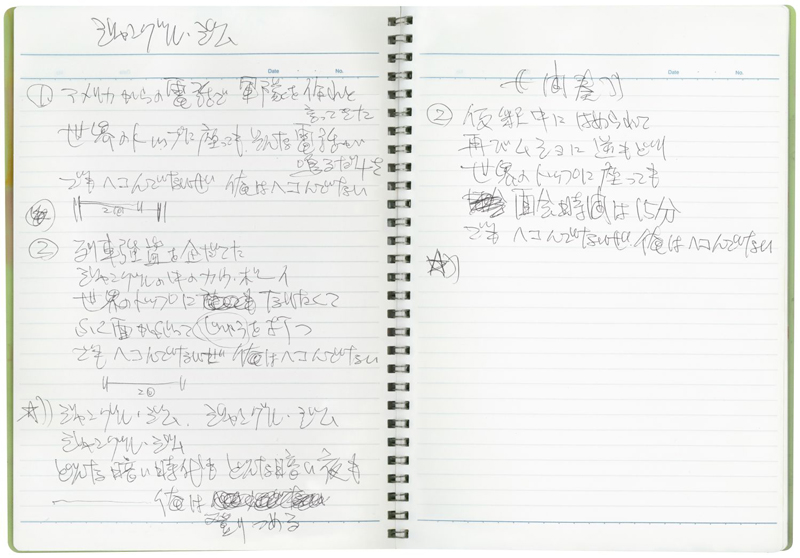 ジャングル・ジム
Date No.
① アメリカからの電話で 軍隊を作れと
言ってきた
世界のトップに座っても そんな電話が
鳴る
でもヘコんでないぜ 俺はヘコんでない
2回
② 列車強盗を企だてた
ジャングルの中のカウ・ボーイ
世界のトップに なりたくて
正面からいって を
でもヘコんでないぜ 俺はヘコんでない
2回
☆)) ジャングル・ジム、ジャングル・ジム
ジャングル・ジム
どんな暗い時代も どんな暗い夜も
俺は
登りつめる
Date No.
《間奏》
② 仮釈中に はめられて
再びムショに 逆もどり
世界のトップに座っても
面会時間は15分
でも ヘコんでないぜ 俺はヘコんでない
☆))